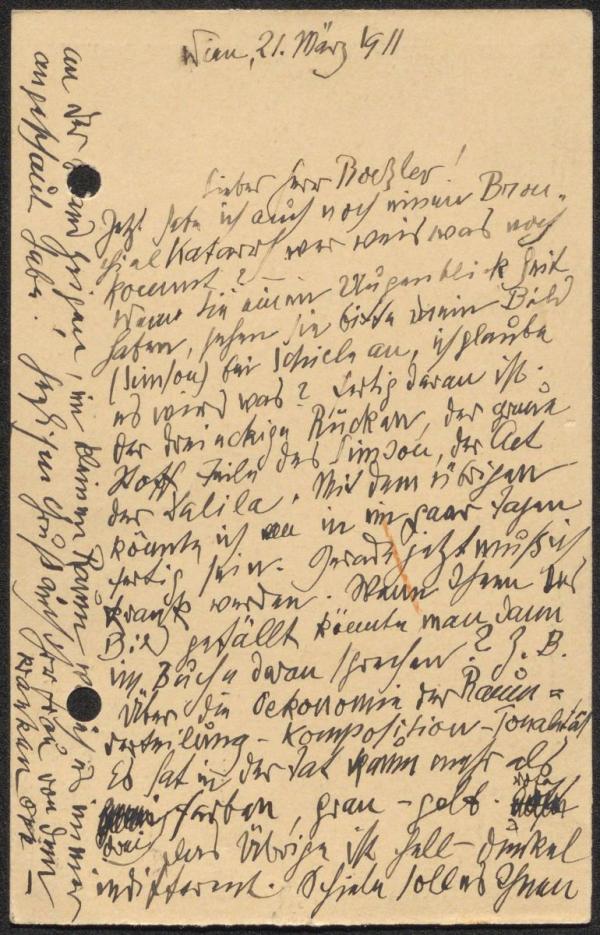 Wien, 21. März 1911
Lieber Herr Roeßler!
Jetzt habe ich auch noch einen Bron-
chial Katarrh wer weis was noch
kommt? –
Wenn Sie einen Augenblick Zeit
haben, sehen Sie bitte mein Bild
(Simson) bei Schiele an, ich glaube
es wird was? Fertig daran ist.
Der dreieckige Rücken, der graue
Stoff Teile des Simson, der Act
der Dalila. Mit dem übrigen
könnte ich in ein paar Tagen
fertig sein. Gerade jetzt muß ich
krank werden. Wenn Ihnen das
Bild gefällt könnte man dann
im Buche davon sprechen? Z. B.
Über die Oekonomie der Raum =
verteilung – Komposition – Tonalität
Es hat in der Tat kaum mehr als
drei Farben, grau – gelb – rot
Das Übrige ist hell – dunkel
indifferent. Schiele soll es Ihnen
an der Wand zeigen, im kleinen Raum wo ich es immer
angeschaut habe. Herzlichen Gruß auch Ihrer Frau von dem
kranken Opp –